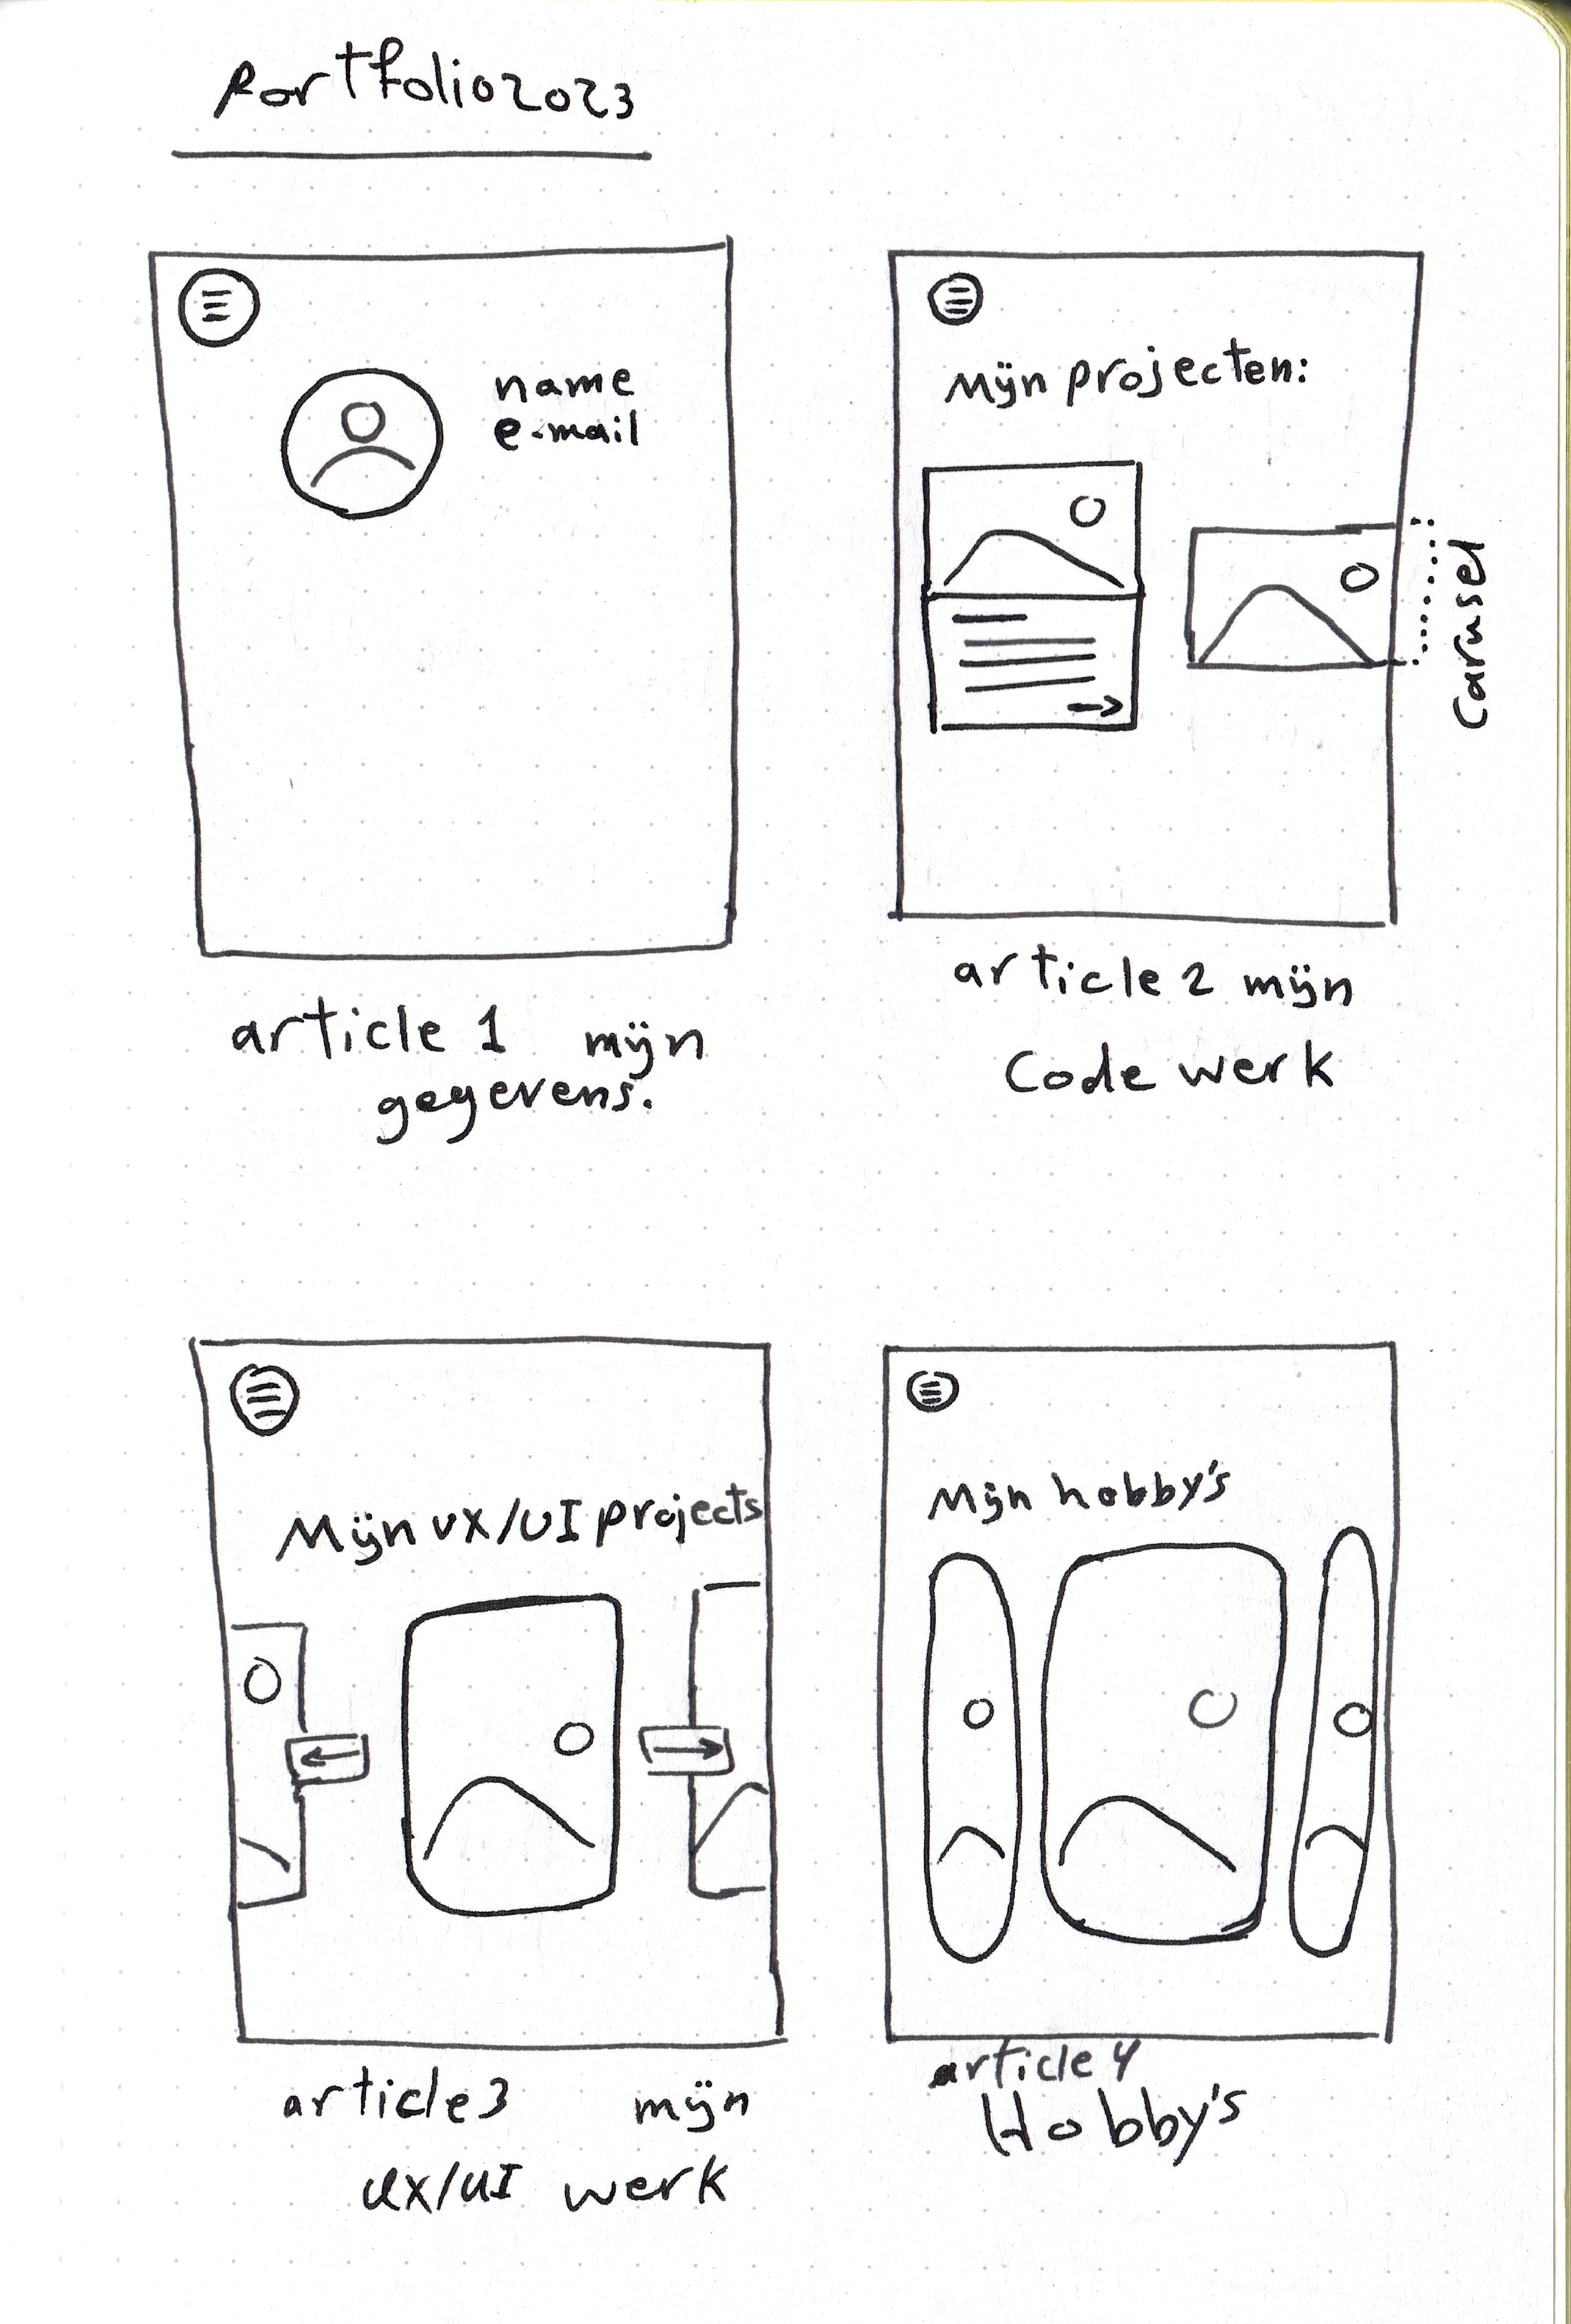 Portfolio2023
name
e-mail
article 1 mijn
gegevens.
Mijn projecten:
Carusel
article 2 mijn
Code werk
Mijn UX/UI projects
article 3 mijn
UX/UI werk
Mijn hobby's
article 4
Hobby's